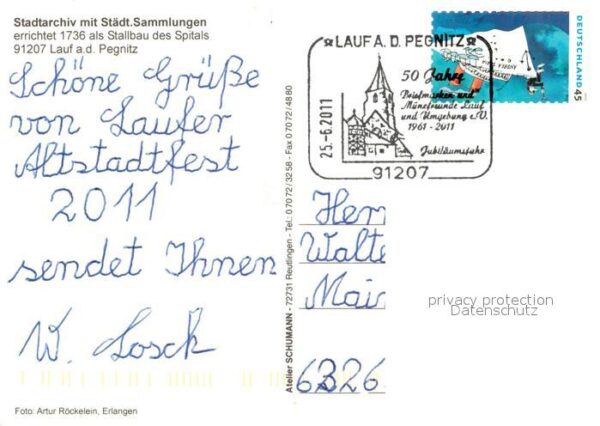 Stadtarchiv mit Städt.Sammlungen
errichtet 1736 als Stallbau des Spitals
91207 Lauf a.d. Pegnitz
Schöne Grüße
von Laufer
Altstadtfest
2011
sendet Ihnen
W. Losch
Foto: Artur Röckelein, Erlangen
Atelier SCHUMANN - 72731 Reutlingen - Tel.: 07072/3258 - Fax 07072/4880
LAUF A. D. PEGNITZ
50 Jahre
Briefmarken und
Münzfreunde Lauf
und Umgebung e.V.
1961 - 2011
Jubiläumsfahr
25.-6.2011
91207
DEUTSCHLAND 45
Herr
Walte
Main
6326
privacy protection
Datenschutz